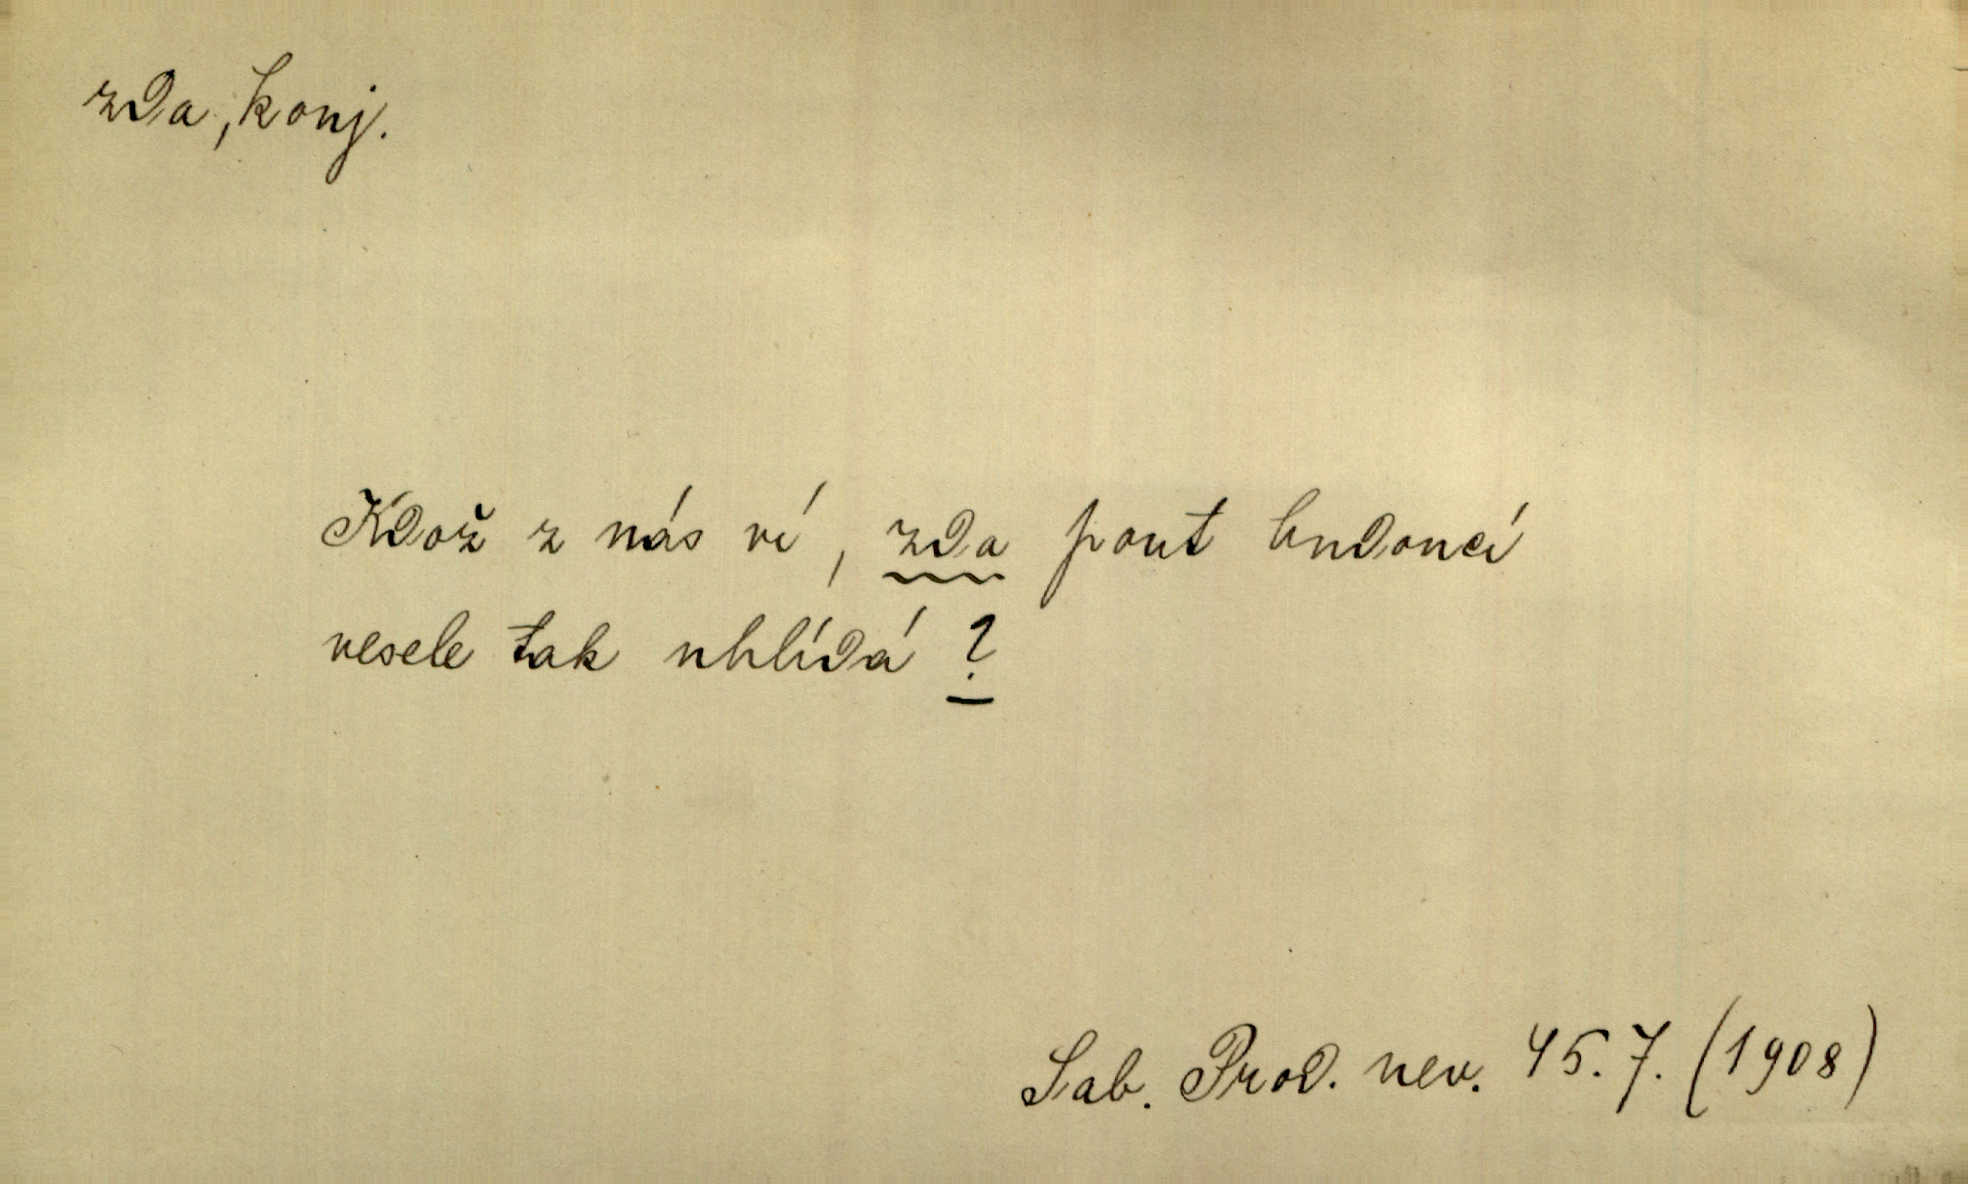 zda, konj.
Kdož z nás ví, zda pout budoucí
vesele tak uhlídá?
Sab. Prod. nev. 45.7. (1908)